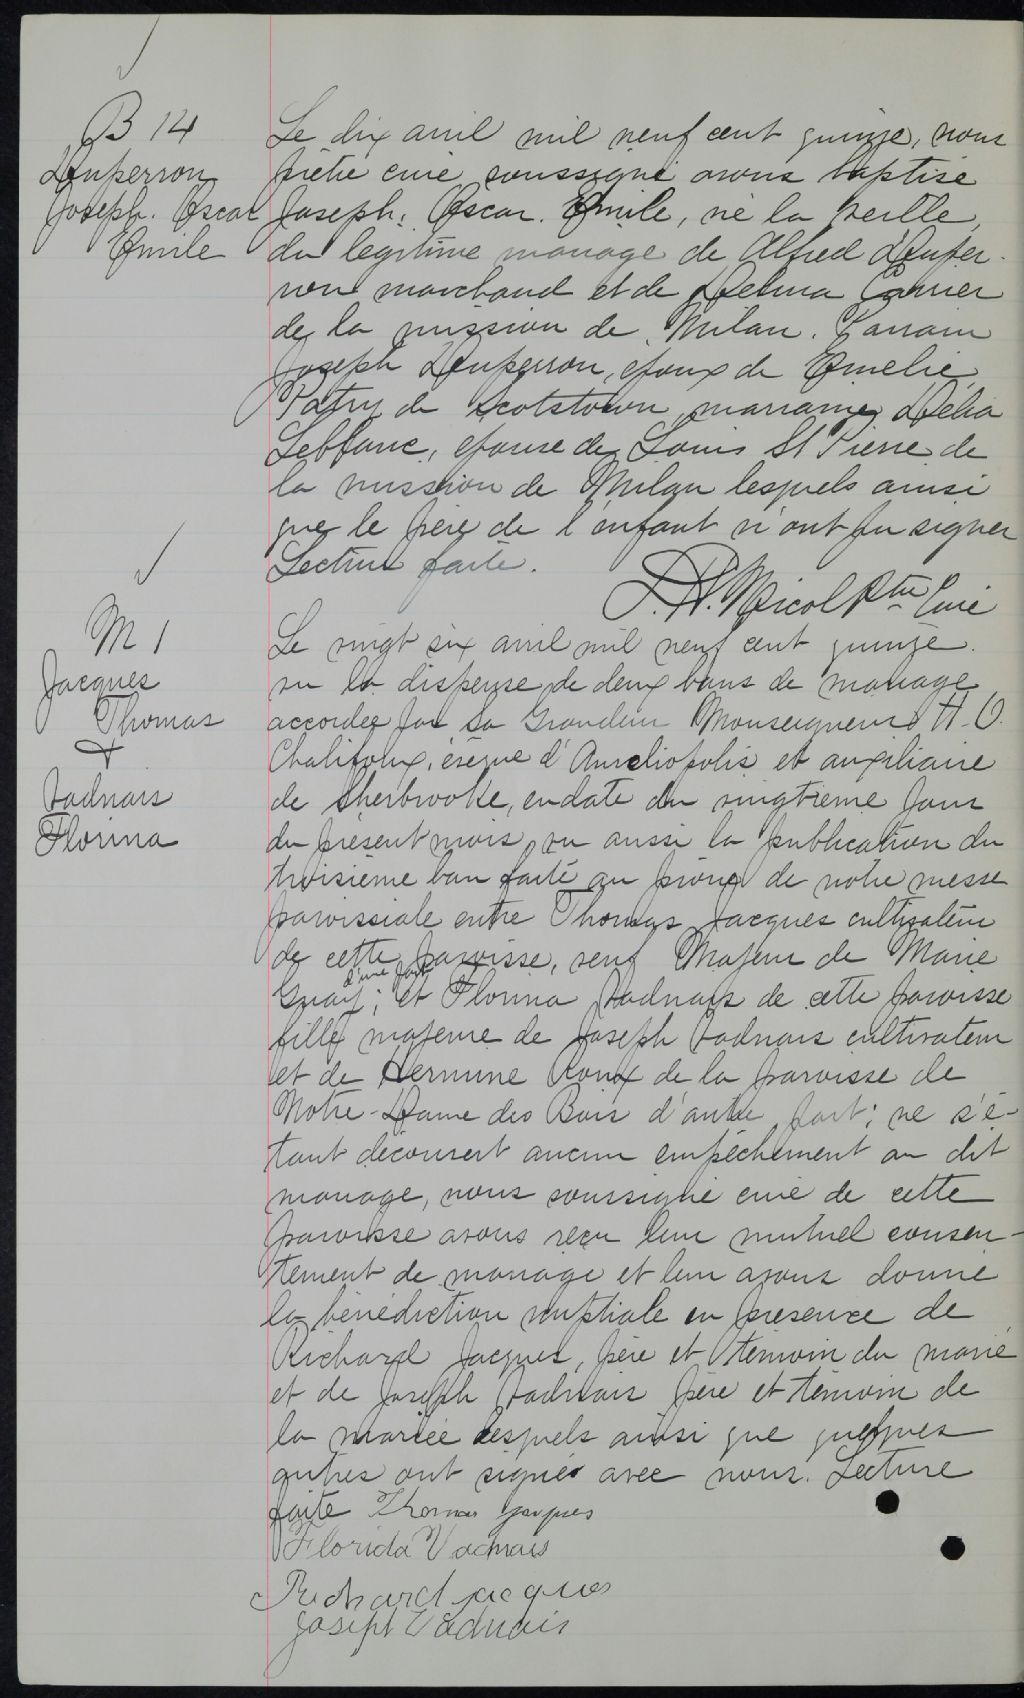 B 14
Duperron
Joseph. Oscar
Emile
Le dix avril mil neuf cent quinze, nous
prêtre curé soussigné avons baptisé
Joseph. Oscar. Emile, né la veille,
du légitime mariage de Alfred Duper-
ron marchand et de Delma Carrier
de la mission de Milan. Parrain
Joseph Duperron, époux de Emélie
Patry de Scotstown, marraine Délia
Leblanc, épouse de Louis St Pierre de
la mission de Milan lesquels ainsi
que le père de l'enfant n'ont pu signer
Lecture faite.
Nicol Ptre Curé
M 1
Jacques
Thomas
&
Vadnais
Florina
Le vingt six avril mil neuf cent quinze.
vu la dispense de deux bans de mariage
accordée par Sa Grandeur Monseigneur H. O.
Chalifoux, évêque d'Aureliopolis et auxiliaire
de Sherbrooke, en date du vingtième jour
du présent mois, vu aussi la publication du
troisième ban faite au prône de notre messe
paroissiale entre Thomas Jacques cultivateur
de cette paroisse, veuf majeur de Marie
Guay d'une part; et Florina Vadnais de cette paroisse
fille majeure de Joseph Vadnais cultivateur
et de Hermine Roux de la paroisse de
Notre-Dame des Bois d'autre part; ne s'é-
tant découvert aucun empêchement au dit
mariage, nous soussigné curé de cette
paroisse avons reçu leur mutuel consen-
tement de mariage et leur avons donné
la bénédiction nuptiale en présence de
Richard Jacques, père et témoin du marié
et de Joseph Vadnais père et témoin de
la mariée lesquels ainsi que quelques
autres ont signés avec nous. Lecture
faite Thomas Jacques
Florida Vadnais
Richard Jacques
Joseph Vadnais